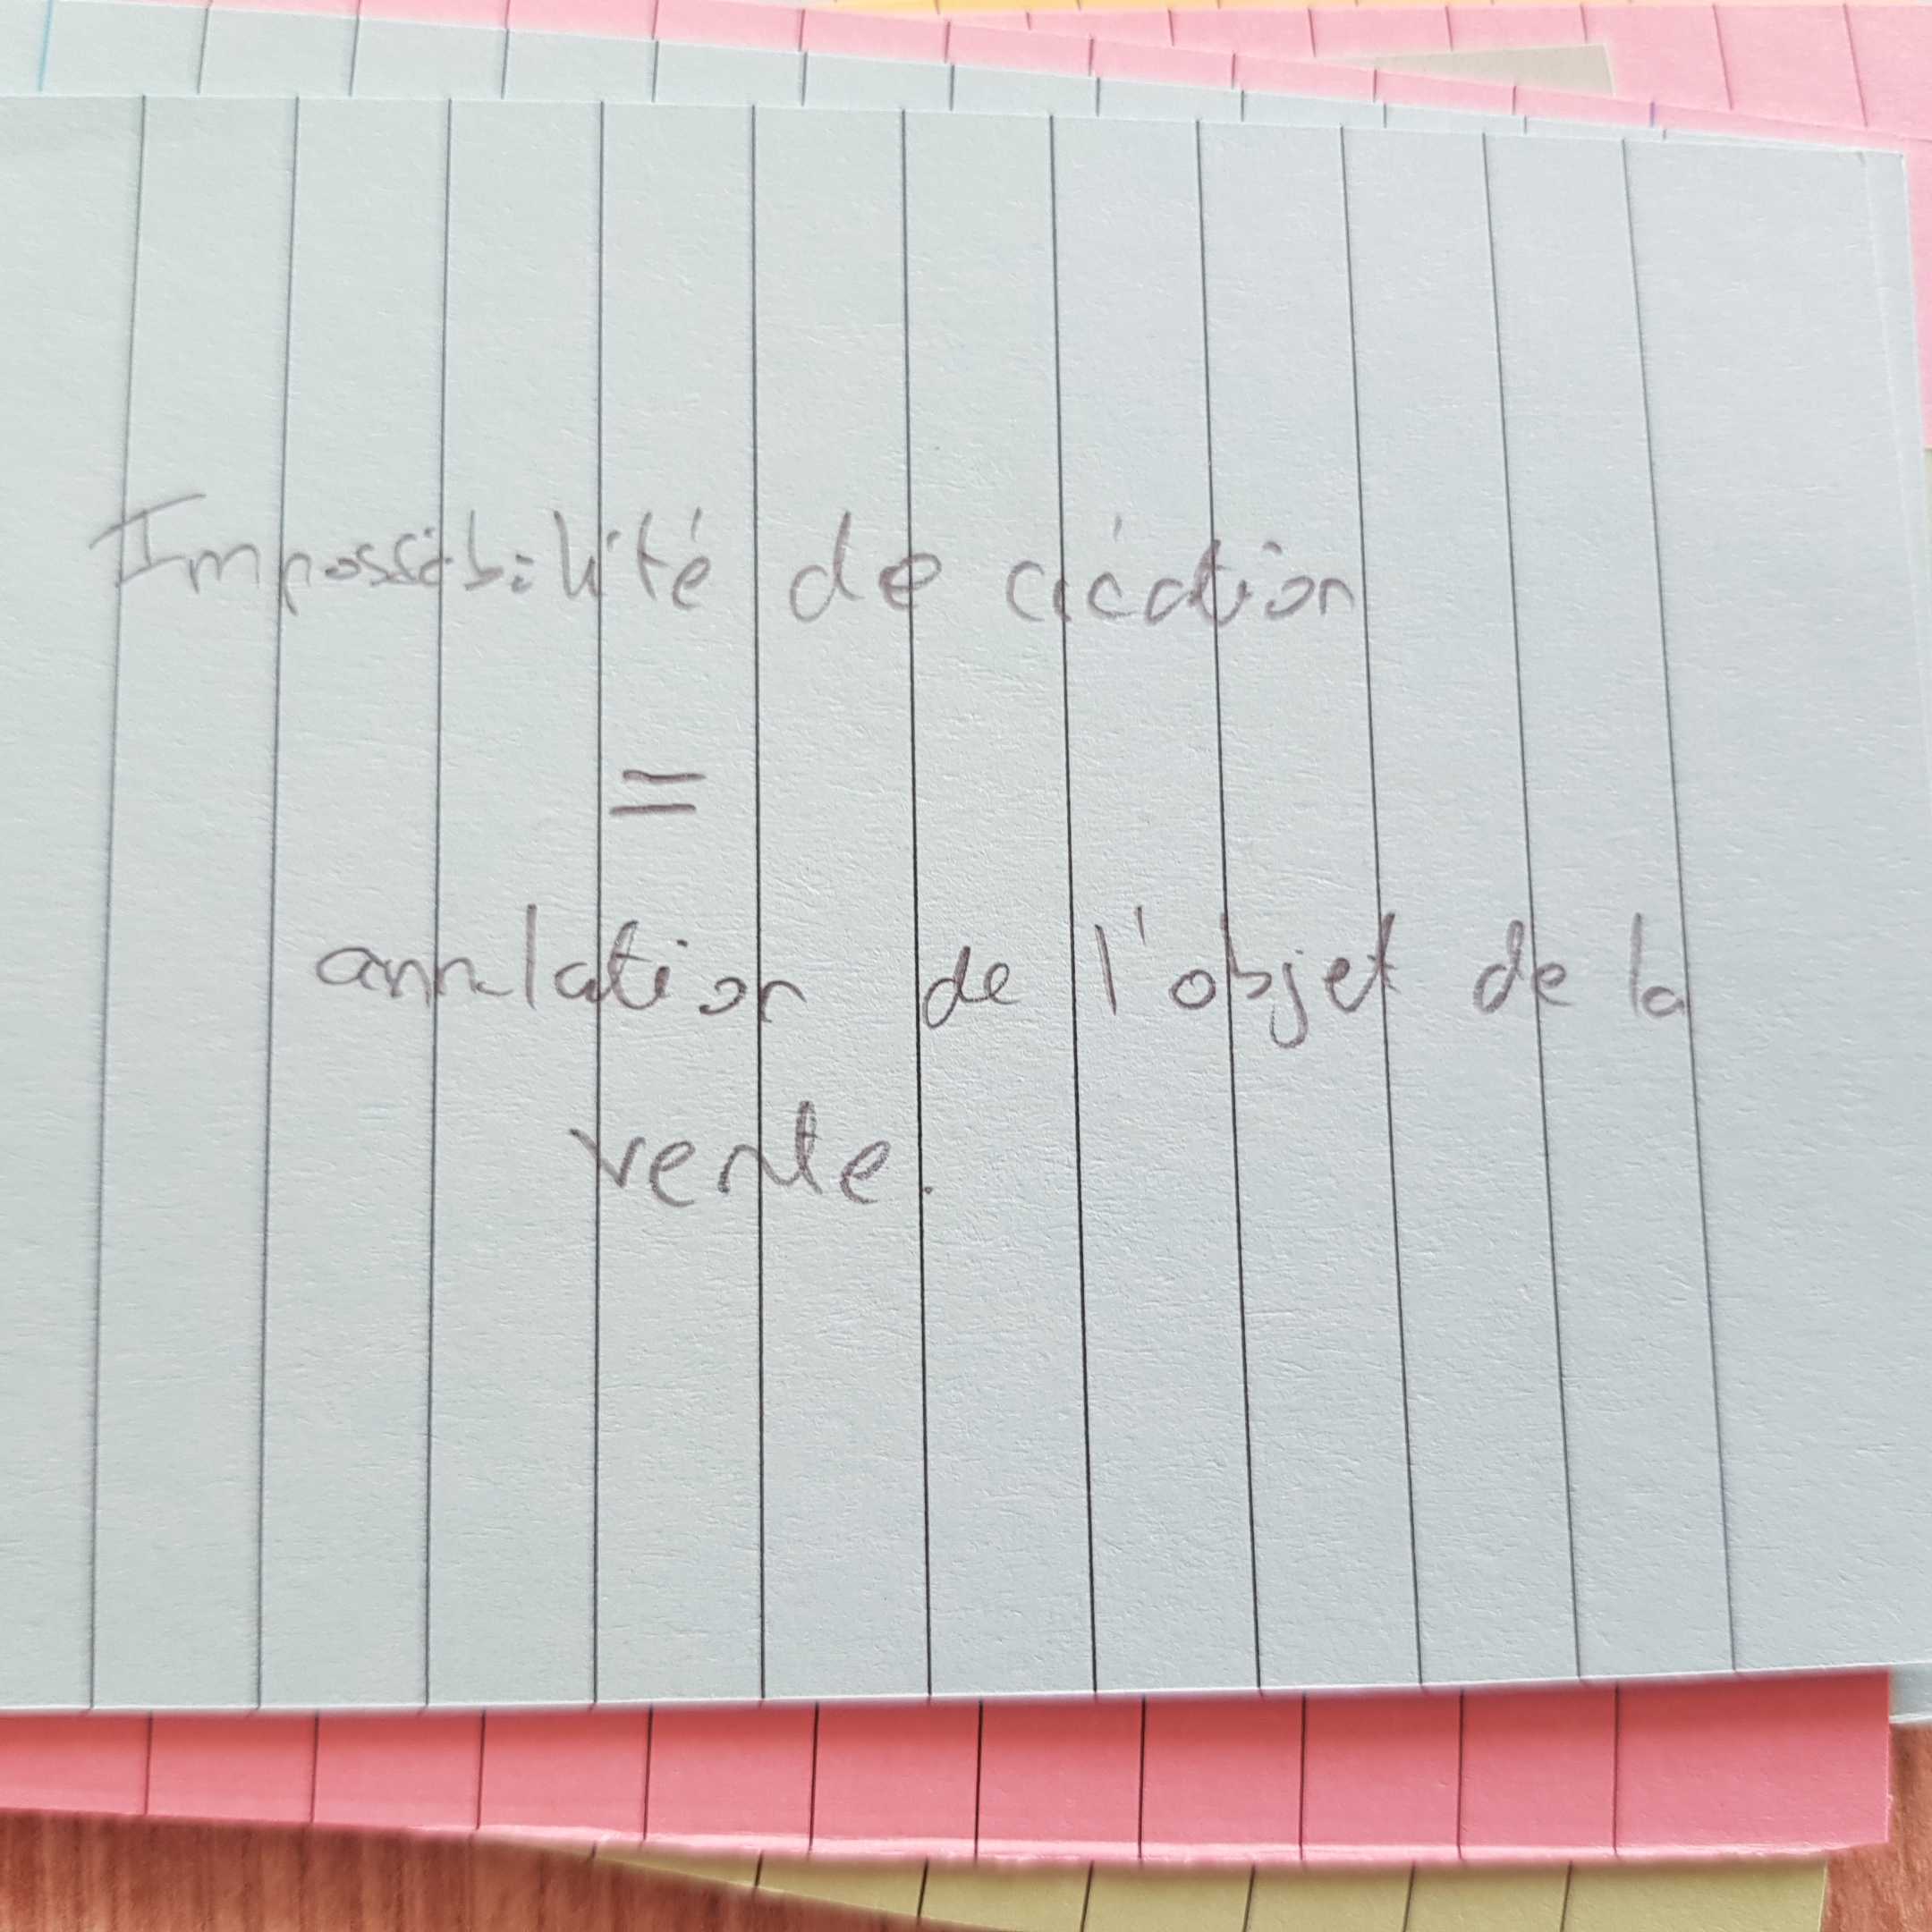 Impossibilité de création
=
annulation de l'objet de la
vente.